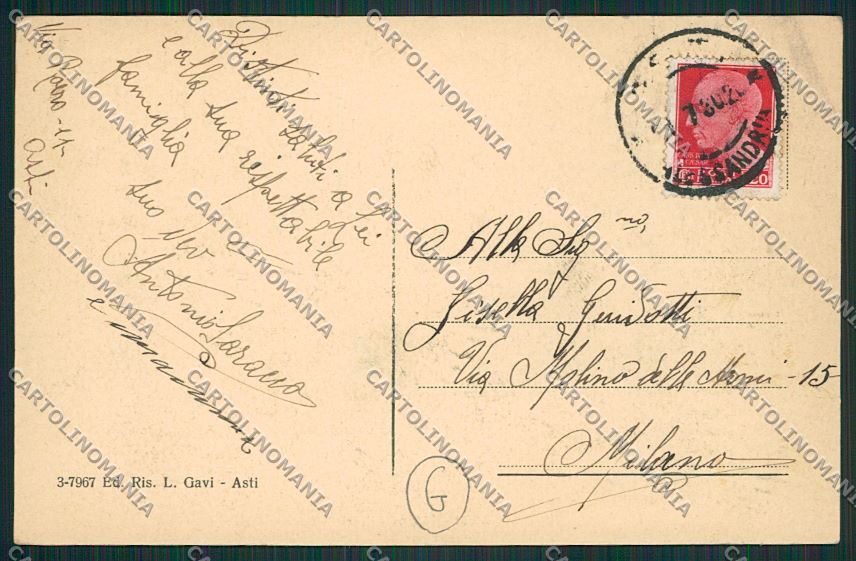 Via Roero - 15
Asti
Distinti saluti a Lei
e alla sua rispettabile
famiglia
suo dev
Antonio Saracco
Alla Sig.na
Gisella Guidotti
Via Molino delle Armi - 15
Milano
3-7967 Ed. Ris. L. Gavi - Asti
G
ALESSANDRIA
CARTOLINOMANIA